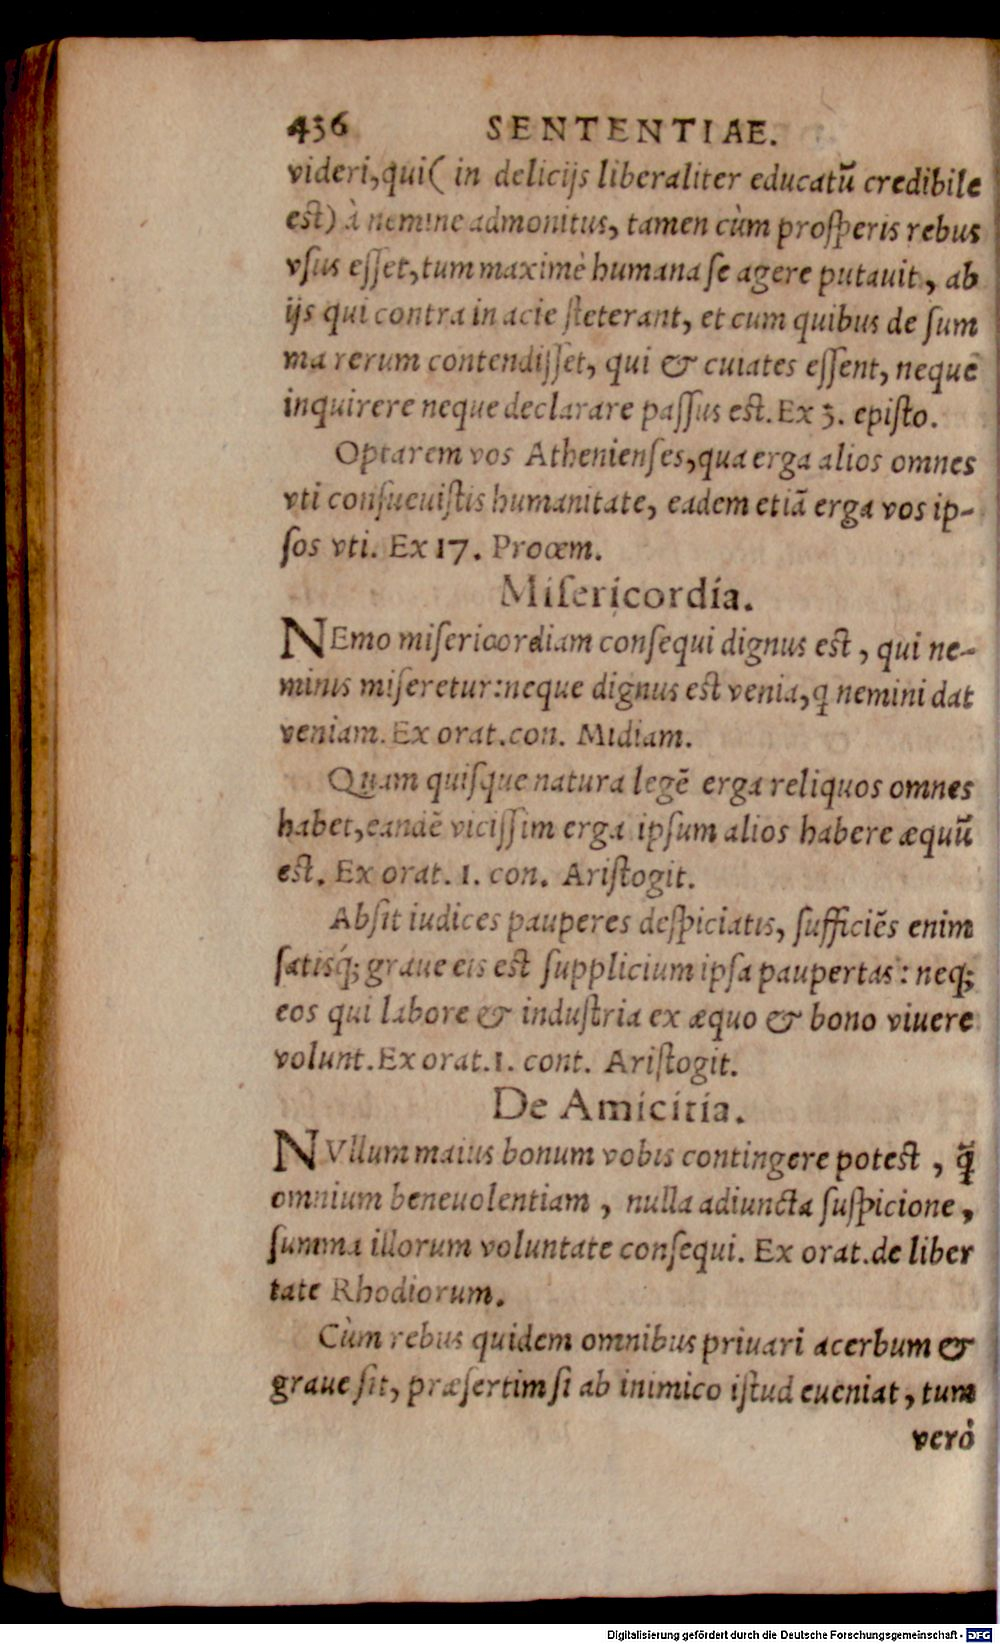 436 SENTENTIAE.
videri,qui( in delicijs liberaliter educatũ credibile
est) à nemine admonitus, tamen cùm prosperis rebus
vſus eſſet,tum maximè humana ſe agere putauit, ab
ijs qui contra in acie ſteterant, et cum quibus de ſum
ma rerum contendiſſet, qui & cuiates eſſent, neque
inquirere neque declarare paſſus est. Ex 3. epiſto.
Optarem vos Athenienſes,qua erga alios omnes
vti conſueuiſtis humanitate, eadem etiã erga vos ip-
ſos vti. Ex 17. Proœm.
Miſericordia.
NEmo miſericordiam conſequi dignus est, qui ne-
minis miſeretur:neque dignus est venia,q nemini dat
veniam. Ex orat.con. Midiam.
Quam quiſque natura legẽ erga reliquos omnes
habet,eandẽ viciſſim erga ipſum alios habere æquũ
est. Ex orat. 1. con. Ariſtogit.
Abſit iudices pauperes deſpiciatis, ſufficiẽs enim
ſatisq́; graue eis est ſupplicium ipſa paupertas: neq;
eos qui labore & induſtria ex æquo & bono viuere
volunt. Ex orat.1. cont. Ariſtogit.
De Amicitia.
NVllum maius bonum vobis contingere potest, q̃
omnium beneuolentiam, nulla adiuncta ſuſpicione,
ſumma illorum voluntate conſequi. Ex orat.de liber
tate Rhodiorum.
Cùm rebus quidem omnibus priuari acerbum &
graue ſit, præſertim ſi ab inimico iſtud eueniat, tum
verò
Digitalisierung gefördert durch die Deutsche Forschungsgemeinschaft - DFG